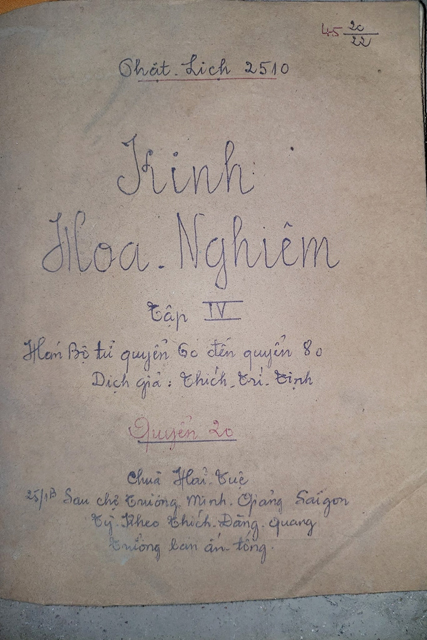 45 20/22
Phật. Lịch 2510
Kinh
Hoa. Nghiêm
Tập IV
Hán Bộ từ quyển 60 đến quyển 80
Dịch giả : Thích. Trí. Tịnh
Quyển 20
Chuà Hải. Tuệ
25/1B Sau chợ Trương Minh. Giảng Saigon
Tỳ. Kheo Thích. Đăng. Quang
Trưởng ban ấn tống.